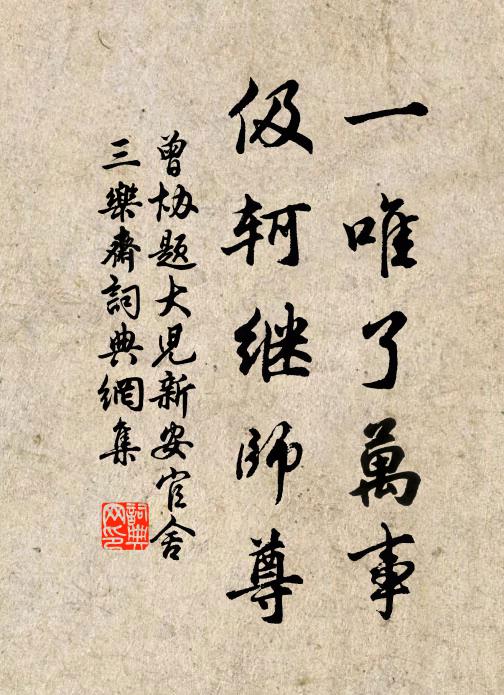 一唯了萬事
伋軻继師尊
曾协题大児新安官舍
三樂齋詞典網集
詞典网印